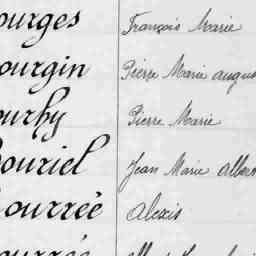 ourges François Marie
ourgin Pierre Marie augus
ourhy Pierre Marie
ouriel Jean Marie
ourreé Alexis